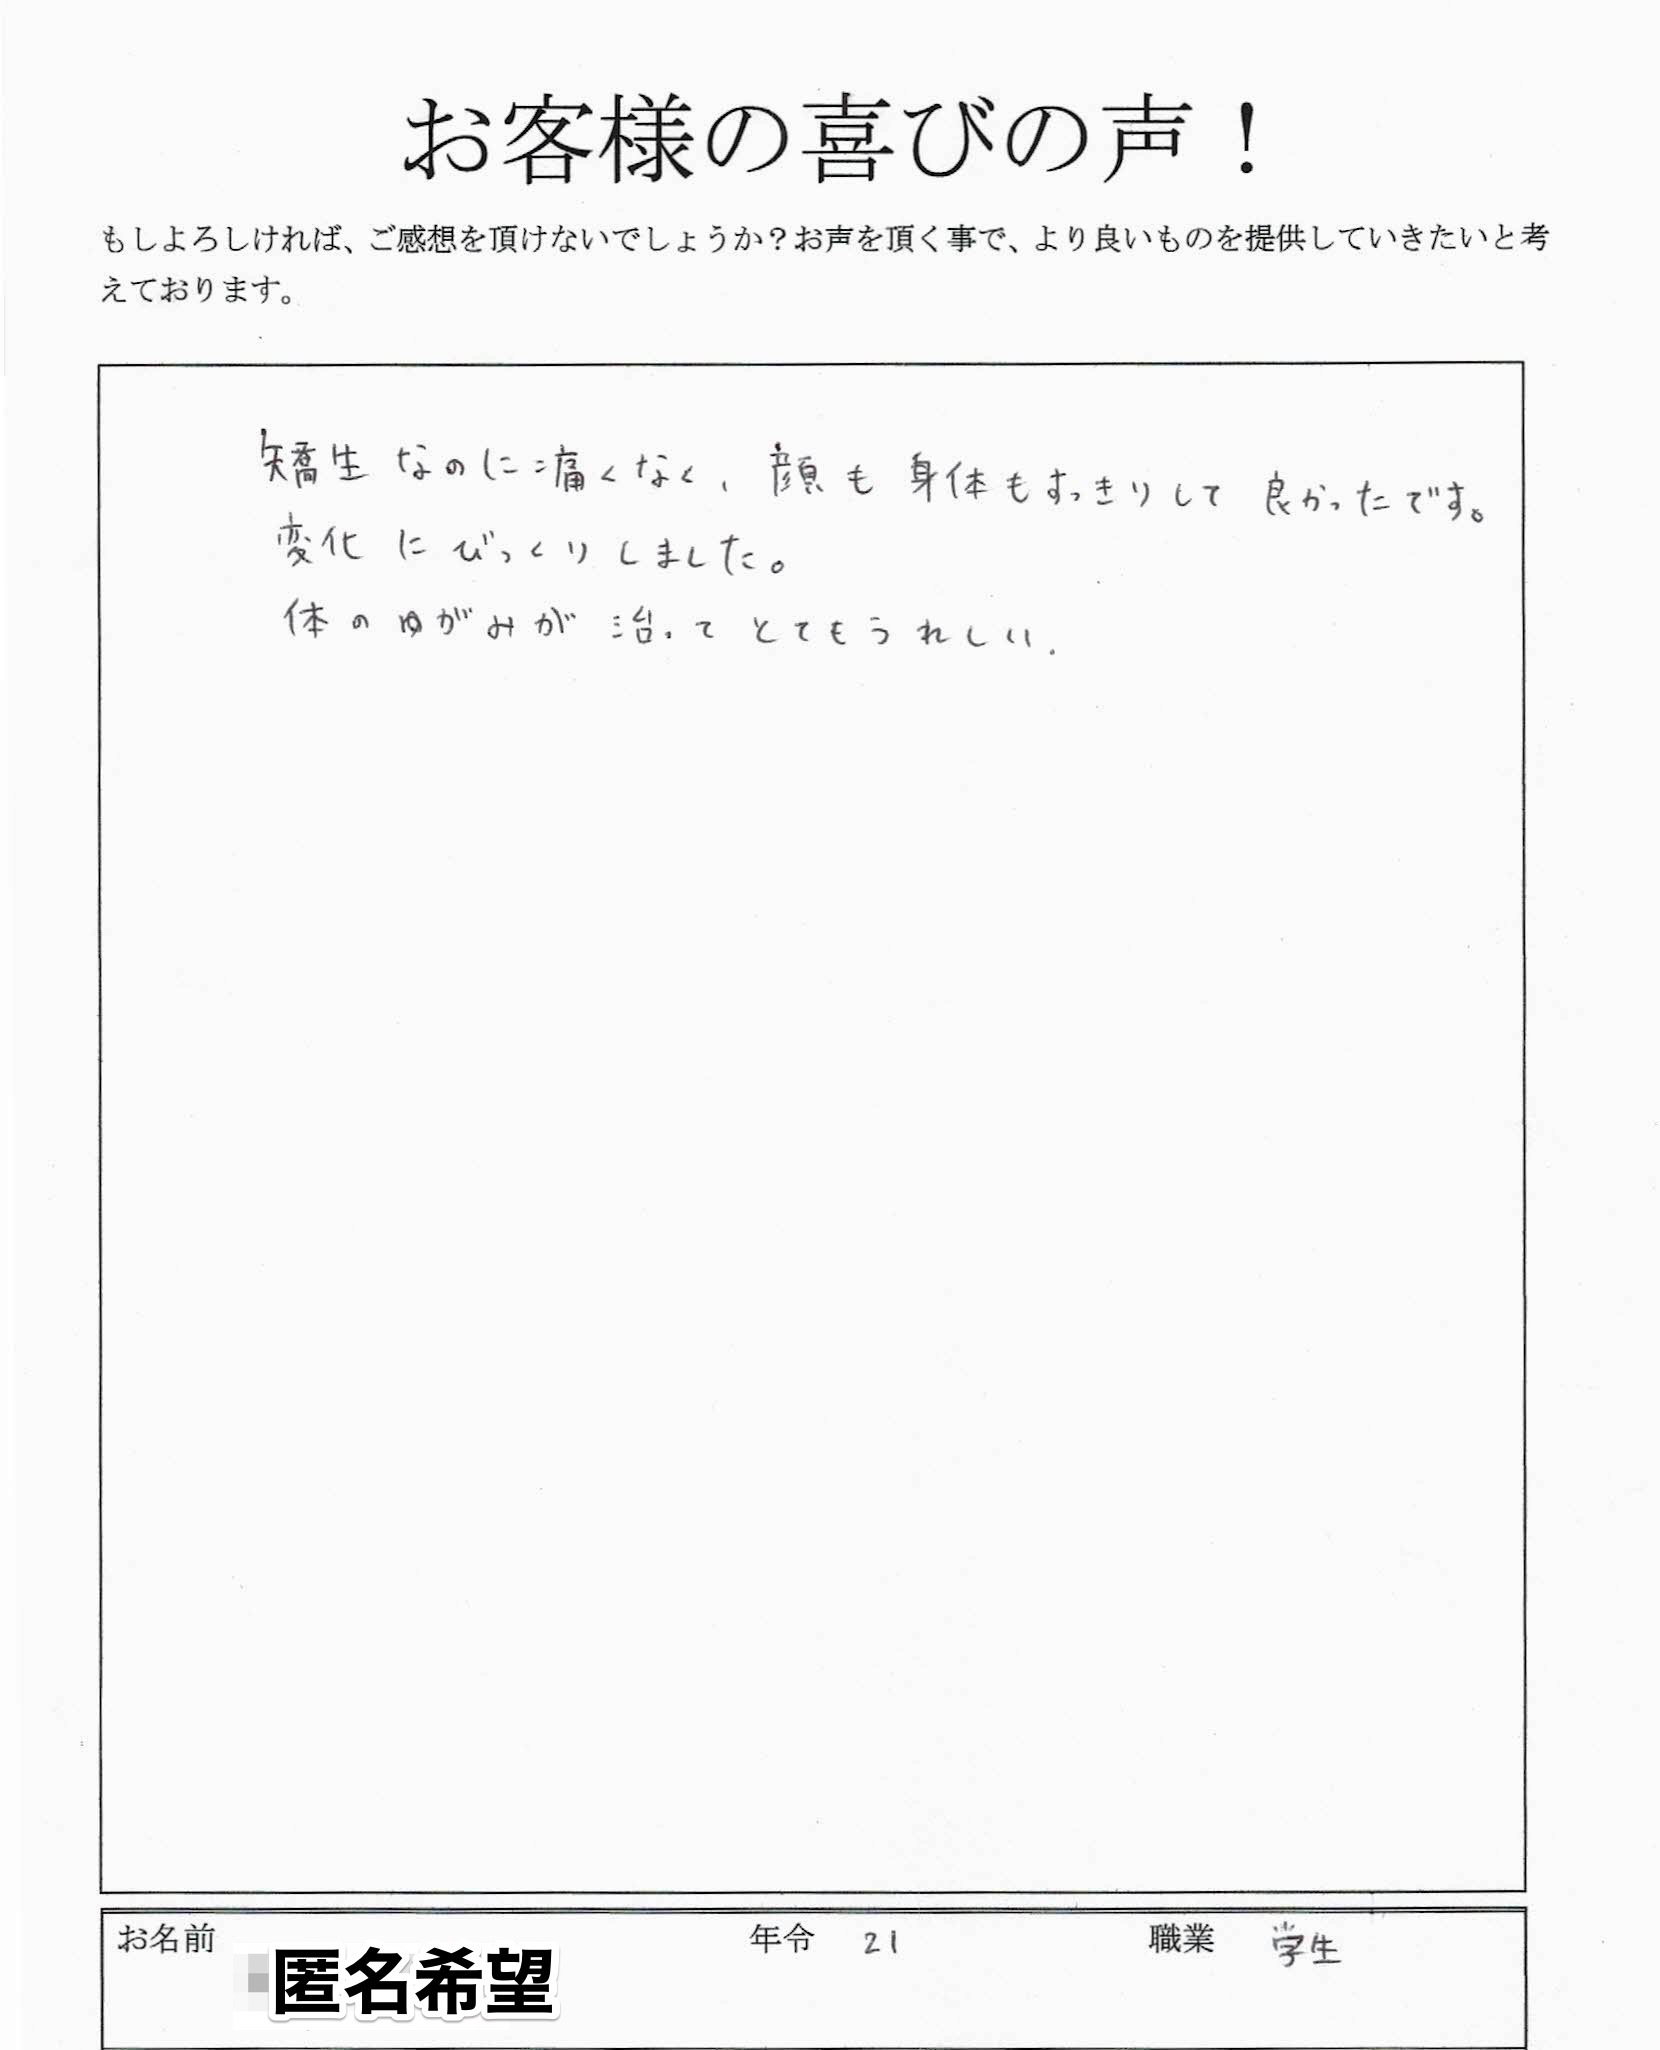 お客様の喜びの声！
もしよろしければ、ご感想を頂けないでしょうか？お声を頂く事で、より良いものを提供していきたいと考
えております。
矯生なのに痛くなく、顔も身体もすっきりして良かったです。
変化にびっくりしました。
体のゆがみが治ってとてもうれしい.
お名前 匿名希望 年令 21 職業 学生